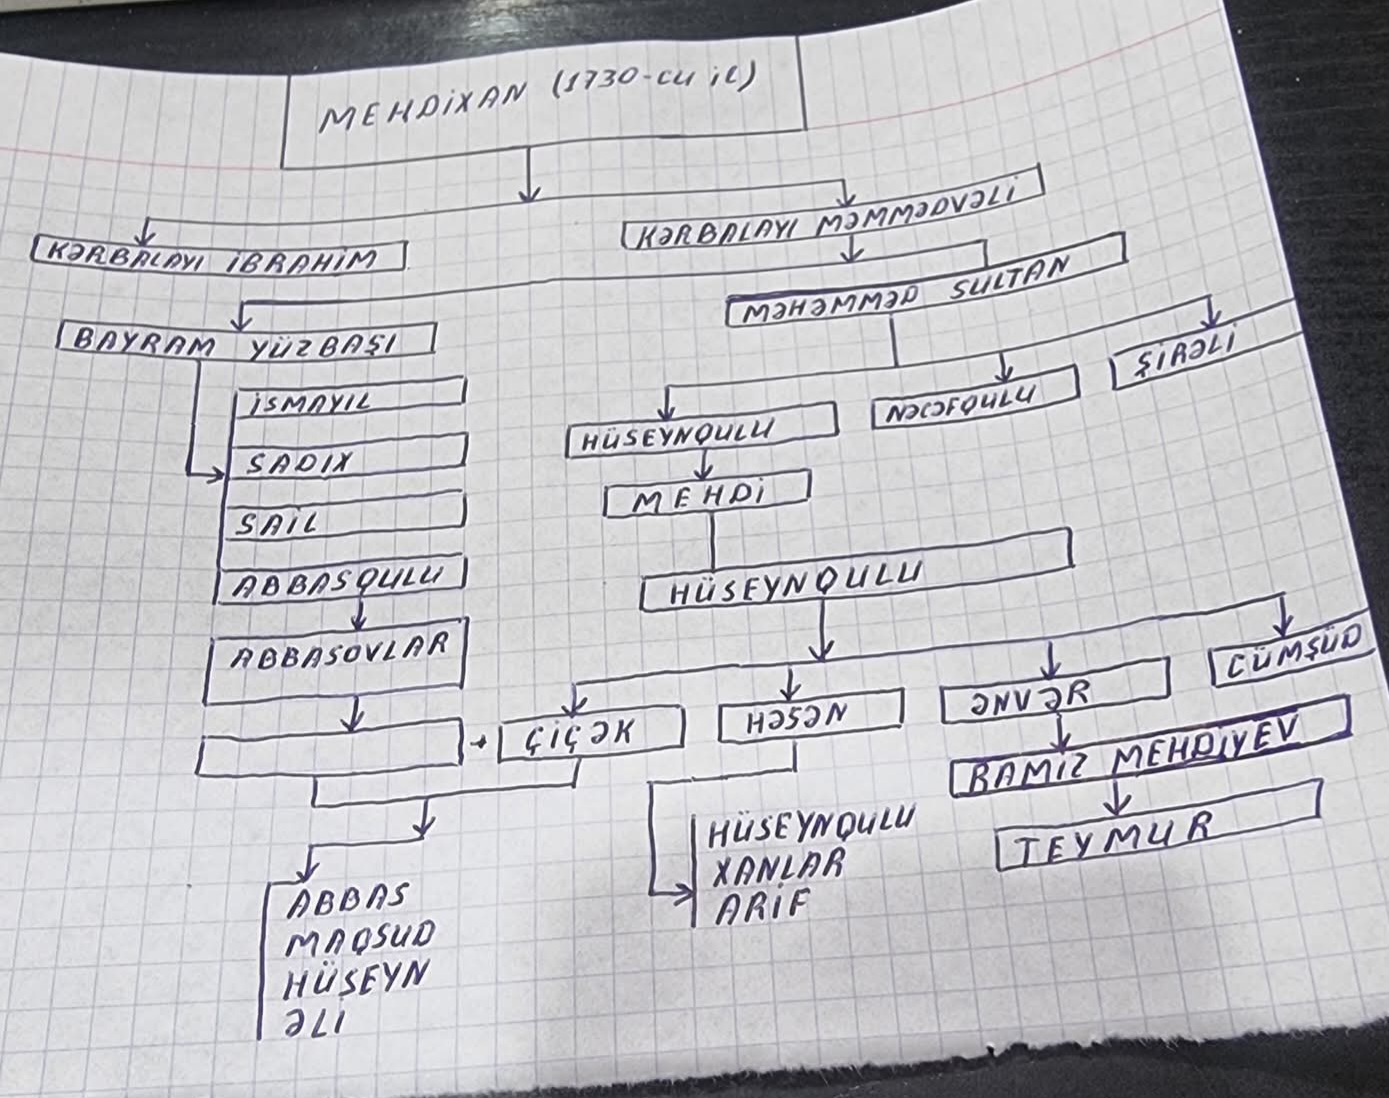 MEHDİXAN (1730-CU İL)
KƏRBALAYI İBRAHİM
KƏRBALAYI MƏMMƏDVƏLİ
BAYRAM YÜZBAŞI
MƏHƏMMƏD SULTAN
İSMAYIL
SADIX
SAİL
ABBASQULU
ABBASOVLAR
HÜSEYNQULU
NƏCƏFQULU
ŞİRƏLİ
MEHDİ
HÜSEYNQULU
+
ÇİÇƏK
HƏSƏN
ƏNVƏR
CÜMŞÜD
RAMİZ MEHDİYEV
TEYMUR
HÜSEYNQULU
XANLAR
ARİF
ABBAS
MAQSUD
HÜSEYN
ƏLİ